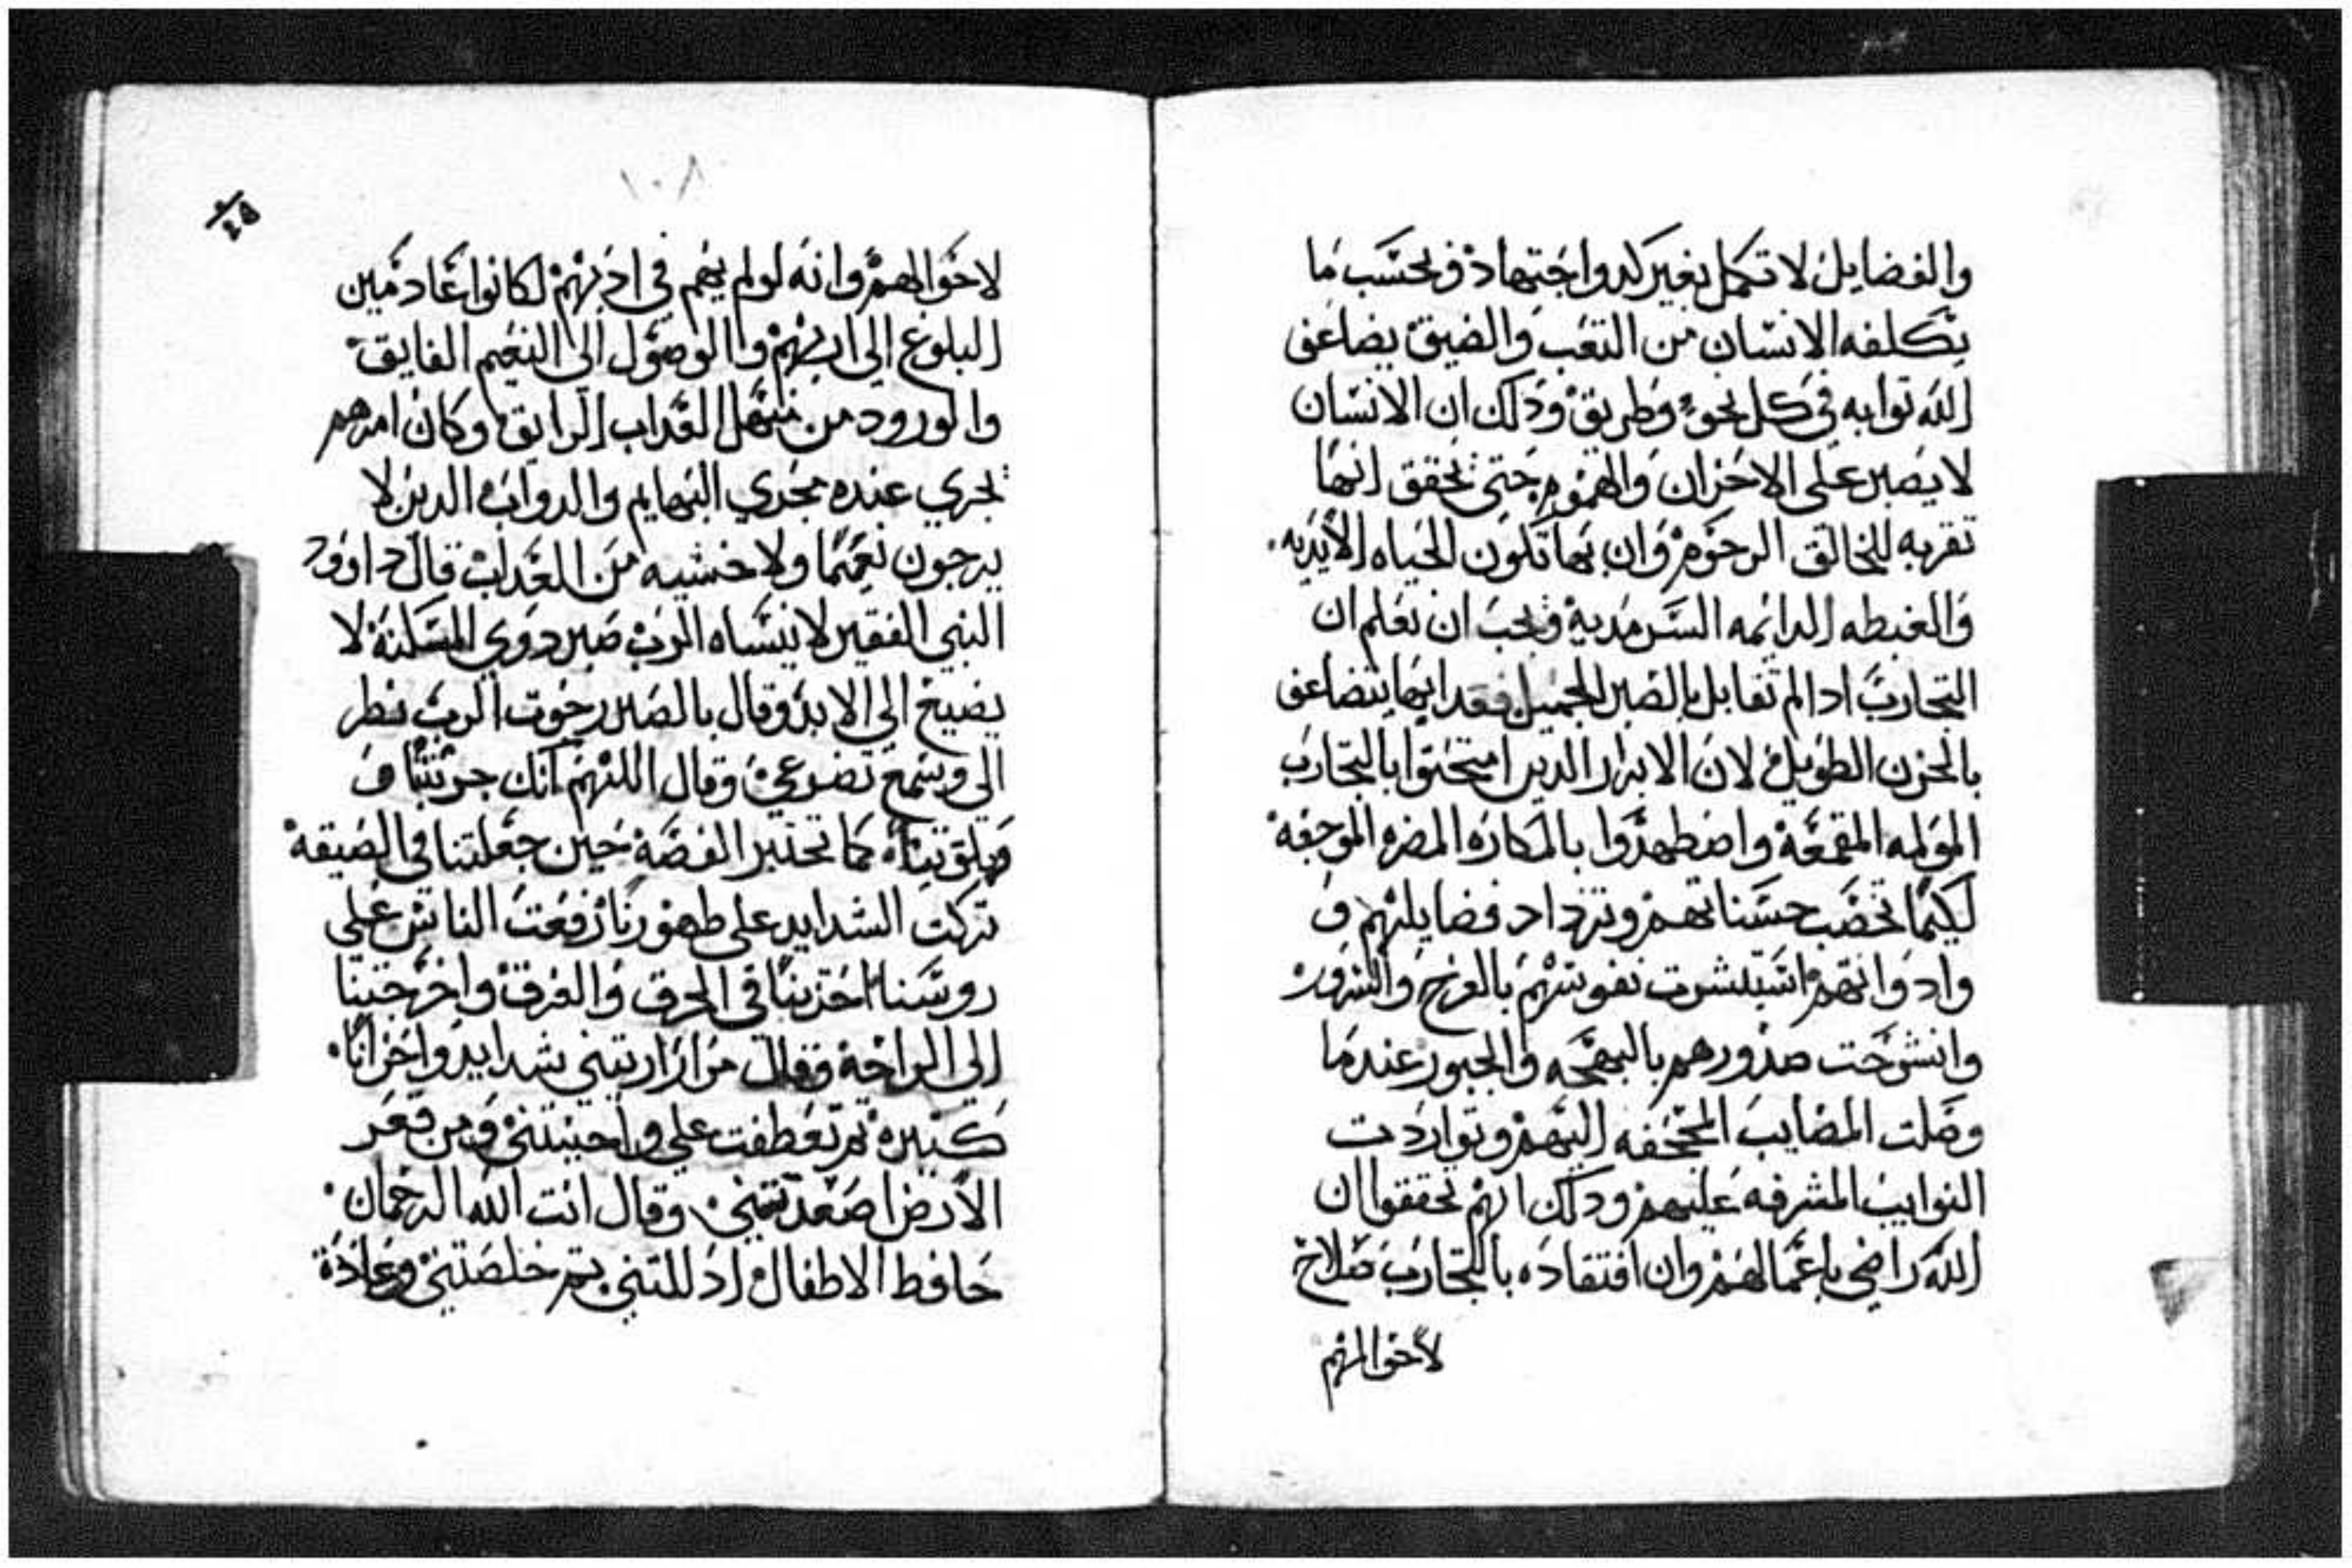 والفضايل لا تكمل بغير كد واجتهاد وبحسب ما
يتكلفه الانسان من التعب والضيق يضاعف
الله توابه في كل نحو وطريق وذلك ان الانسان
لا يصبر على الاحزان والهموم حتى تحقق انها
تقربه للخالق الرحوم وان بها تكون الحياه الابديه
والغبطه الدايمه السرمديه ويجب ان نعلم ان
التجارب ادا لم تقابل بالصبر الجميل فقد انها يتضاعف
بالحزن الطويل لان الابرار الدين امتحنوا بالتجارب
المولمه المقمعة واضطهدوا بالمكاره المضره الموجعه
لكيما تخصب حسناتهم وتزداد فضايلهم و
واد وانهم استبشرت نفوسهم بالفرح والسرور
وانشرحت صدورهم بالبهجه والحبور عندما
وصلت المصايب المجحفه اليهم وتواردت
النوايب المشرفه عليهم ودلك انهم تحققوا ان
الله راضي باعمالهم وان افتقاده بالتجارب صلاح
لاحوالهم
١٠٨
لاحوالهم وانه لو لم يهم في ادبهم لكانوا عادمين
البلوغ الى اربهم والوصول الى النعيم الفايق
والورود من منهل العداب الرايق وكان امرهم
يجري عنده مجري البهايم والدواب الدين لا
يرجون نعيما ولا خشيه من العداب قال داوود
النبي الفقير لا ينساه الرب صبر دوي المسكنة لا
يضيع الي الابد وقال بالصبر رجوت الرب نظر
الي وسمع تضرعي وقال اللهم انك جربتنا و
كما تختبر الفضة حين جعلتنا في الضيقة
تركت الشدايد على ظهورنا رفعت الناس على
روسنا اخزيتنا في الحرق والغرق واخرجتنا
الى الراحة وقال مرارا اريتني شدايد واحزانا
كتيره تم تعطفت علي واحييتني ومن قعر
الارض اصعدتني وقال انت الله الرحمان
حافظ الاطفال ادللتني تم خلصتني وعادة